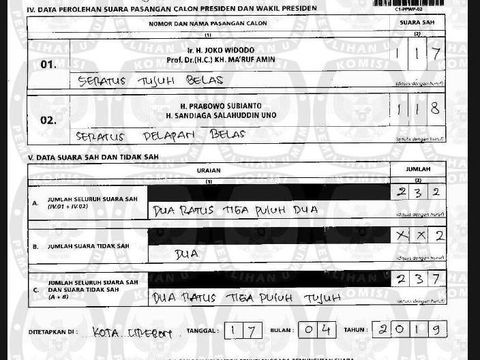 IV. DATA PEROLEHAN SUARA PASANGAN CALON PRESIDEN DAN WAKIL PRESIDEN
C1-PPWP-02
NOMOR DAN NAMA PASANGAN CALON
SUARA SAH
(1)
(2)
01.
Ir. H. JOKO WIDODO
Prof. Dr.(H.C.) KH. MA'RUF AMIN
1 1 7
SERATUS TUJUH BELAS
(ditulis dengan huruf)
02.
H. PRABOWO SUBIANTO
H. SANDIAGA SALAHUDDIN UNO
1 1 8
SERATUS DELAPAN BELAS
(ditulis dengan huruf)
V. DATA SUARA SAH DAN TIDAK SAH
URAIAN
JUMLAH
(1)
(2)
A.
JUMLAH SELURUH SUARA SAH
(IV.01 + IV.02)
2 3 2
DUA RATUS TIGA PULUH DUA
(ditulis dengan huruf)
B.
JUMLAH SUARA TIDAK SAH
X X 2
DUA
(ditulis dengan huruf)
C.
JUMLAH SELURUH SUARA SAH
DAN SUARA TIDAK SAH
(A + B)
2 3 7
DUA RATUS TIGA PULUH TUJUH
(ditulis dengan huruf)
DITETAPKAN DI : KOTA TANGGAL : 1 7 BULAN : 0 4 TAHUN : 2 0 1 9